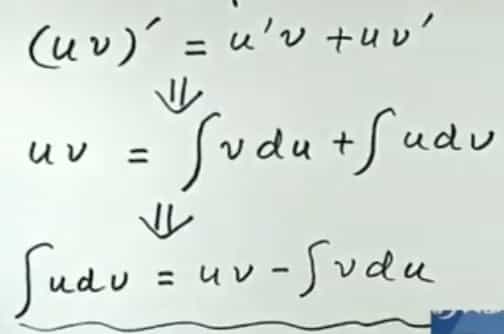 (uv)′ = u′v + uv′
⇓
uv = ∫vdu + ∫udv
⇓
∫udv = uv - ∫vdu